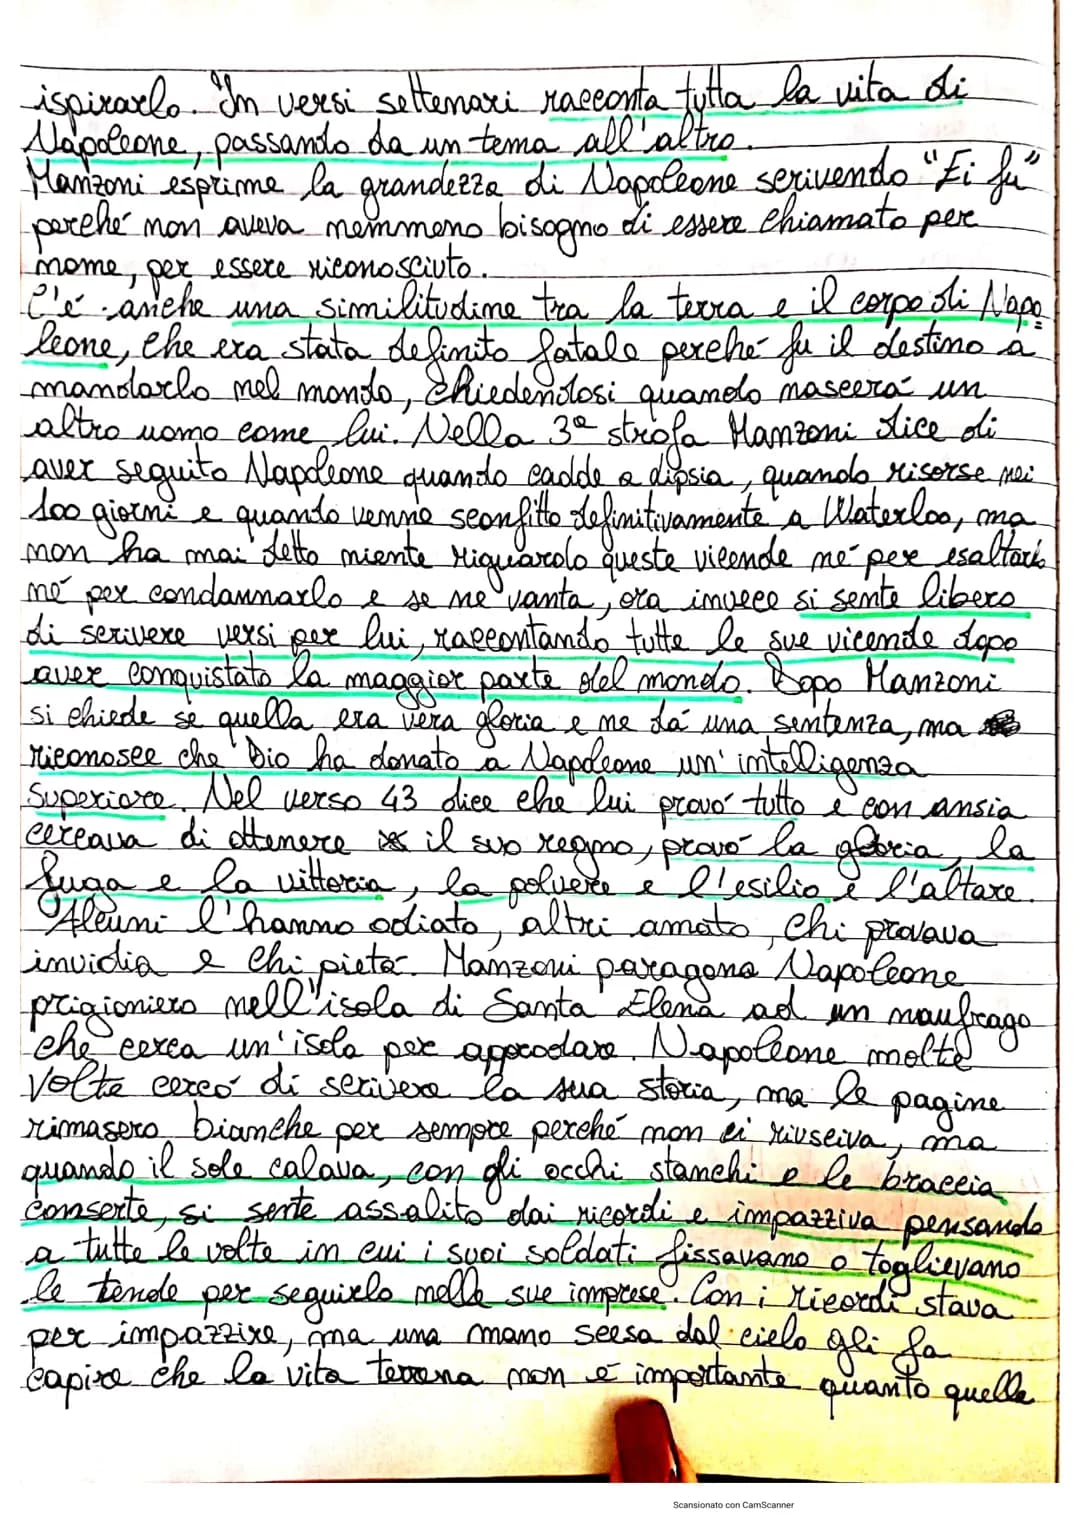 ispirarlo. In versi settenari racconta tutta la vita di
Napoleone, passando da un tema all'altro.
Manzoni esprime la grandezza di Napoleone scrivendo "Ei fu"
perché non aveva nemmeno bisogno di essere chiamato per
nome, per essere riconosciuto.
C'é anche una similitudine tra la terra e il corpo di Napo=
leone, che era stata definito fatale perché fu il destino a
mandarlo nel mondo, chiedendosi quando nascerá un
altro uomo come lui. Nella 3ª strofa Manzoni dice di
aver seguito Napoleone quando cadde a dipsia, quando risorse nei
100 giorni e quando venne sconfitto definitivamente a Waterloo, ma
non ha mai detto niente riguardo queste vicende né per esaltarlo
né per condannarlo e se ne vanta, ora invece si sente libero
di scrivere versi per lui, raccontando tutte le sue vicende dopo
aver conquistato la maggior parte del mondo. Dopo Manzoni
si chiede se quella era vera gloria e ne dá una sentenza, ma
riconosce che Dio ha donato a Napoleone un'intelligenza
Superiore. Nel verso 43 dice che lui provó tutto e con ansia
cercava di ottenere il suo regno, provó la gloria, la
fuga e la vittoria, la polvere e l'esilio e l'altare.
Alcuni l'hanno odiato, altri amato, chi provava
invidia e chi pietá. Manzoni paragona Napoleone
prigioniero nell'isola di Santa Elena ad un naufrago
che cerca un'isola per approdare. Napoleone molte
volte cercó di scrivere la sua storia, ma le pagine
rimasero bianche per sempre perché non ci riusciva, ma
quando il sole calava, con gli occhi stanchi e le braccia
conserte, si sente assalito dai ricordi e impazziva pensando
a tutte le volte in cui i suoi soldati fissavano o toglievano
le tende per seguirlo nelle sue imprese. Con i ricordi stava
per impazzire, ma una mano scesa dal cielo gli fa
capire che la vita terrena non é importante quanto quella
Scansionato con CamScanner